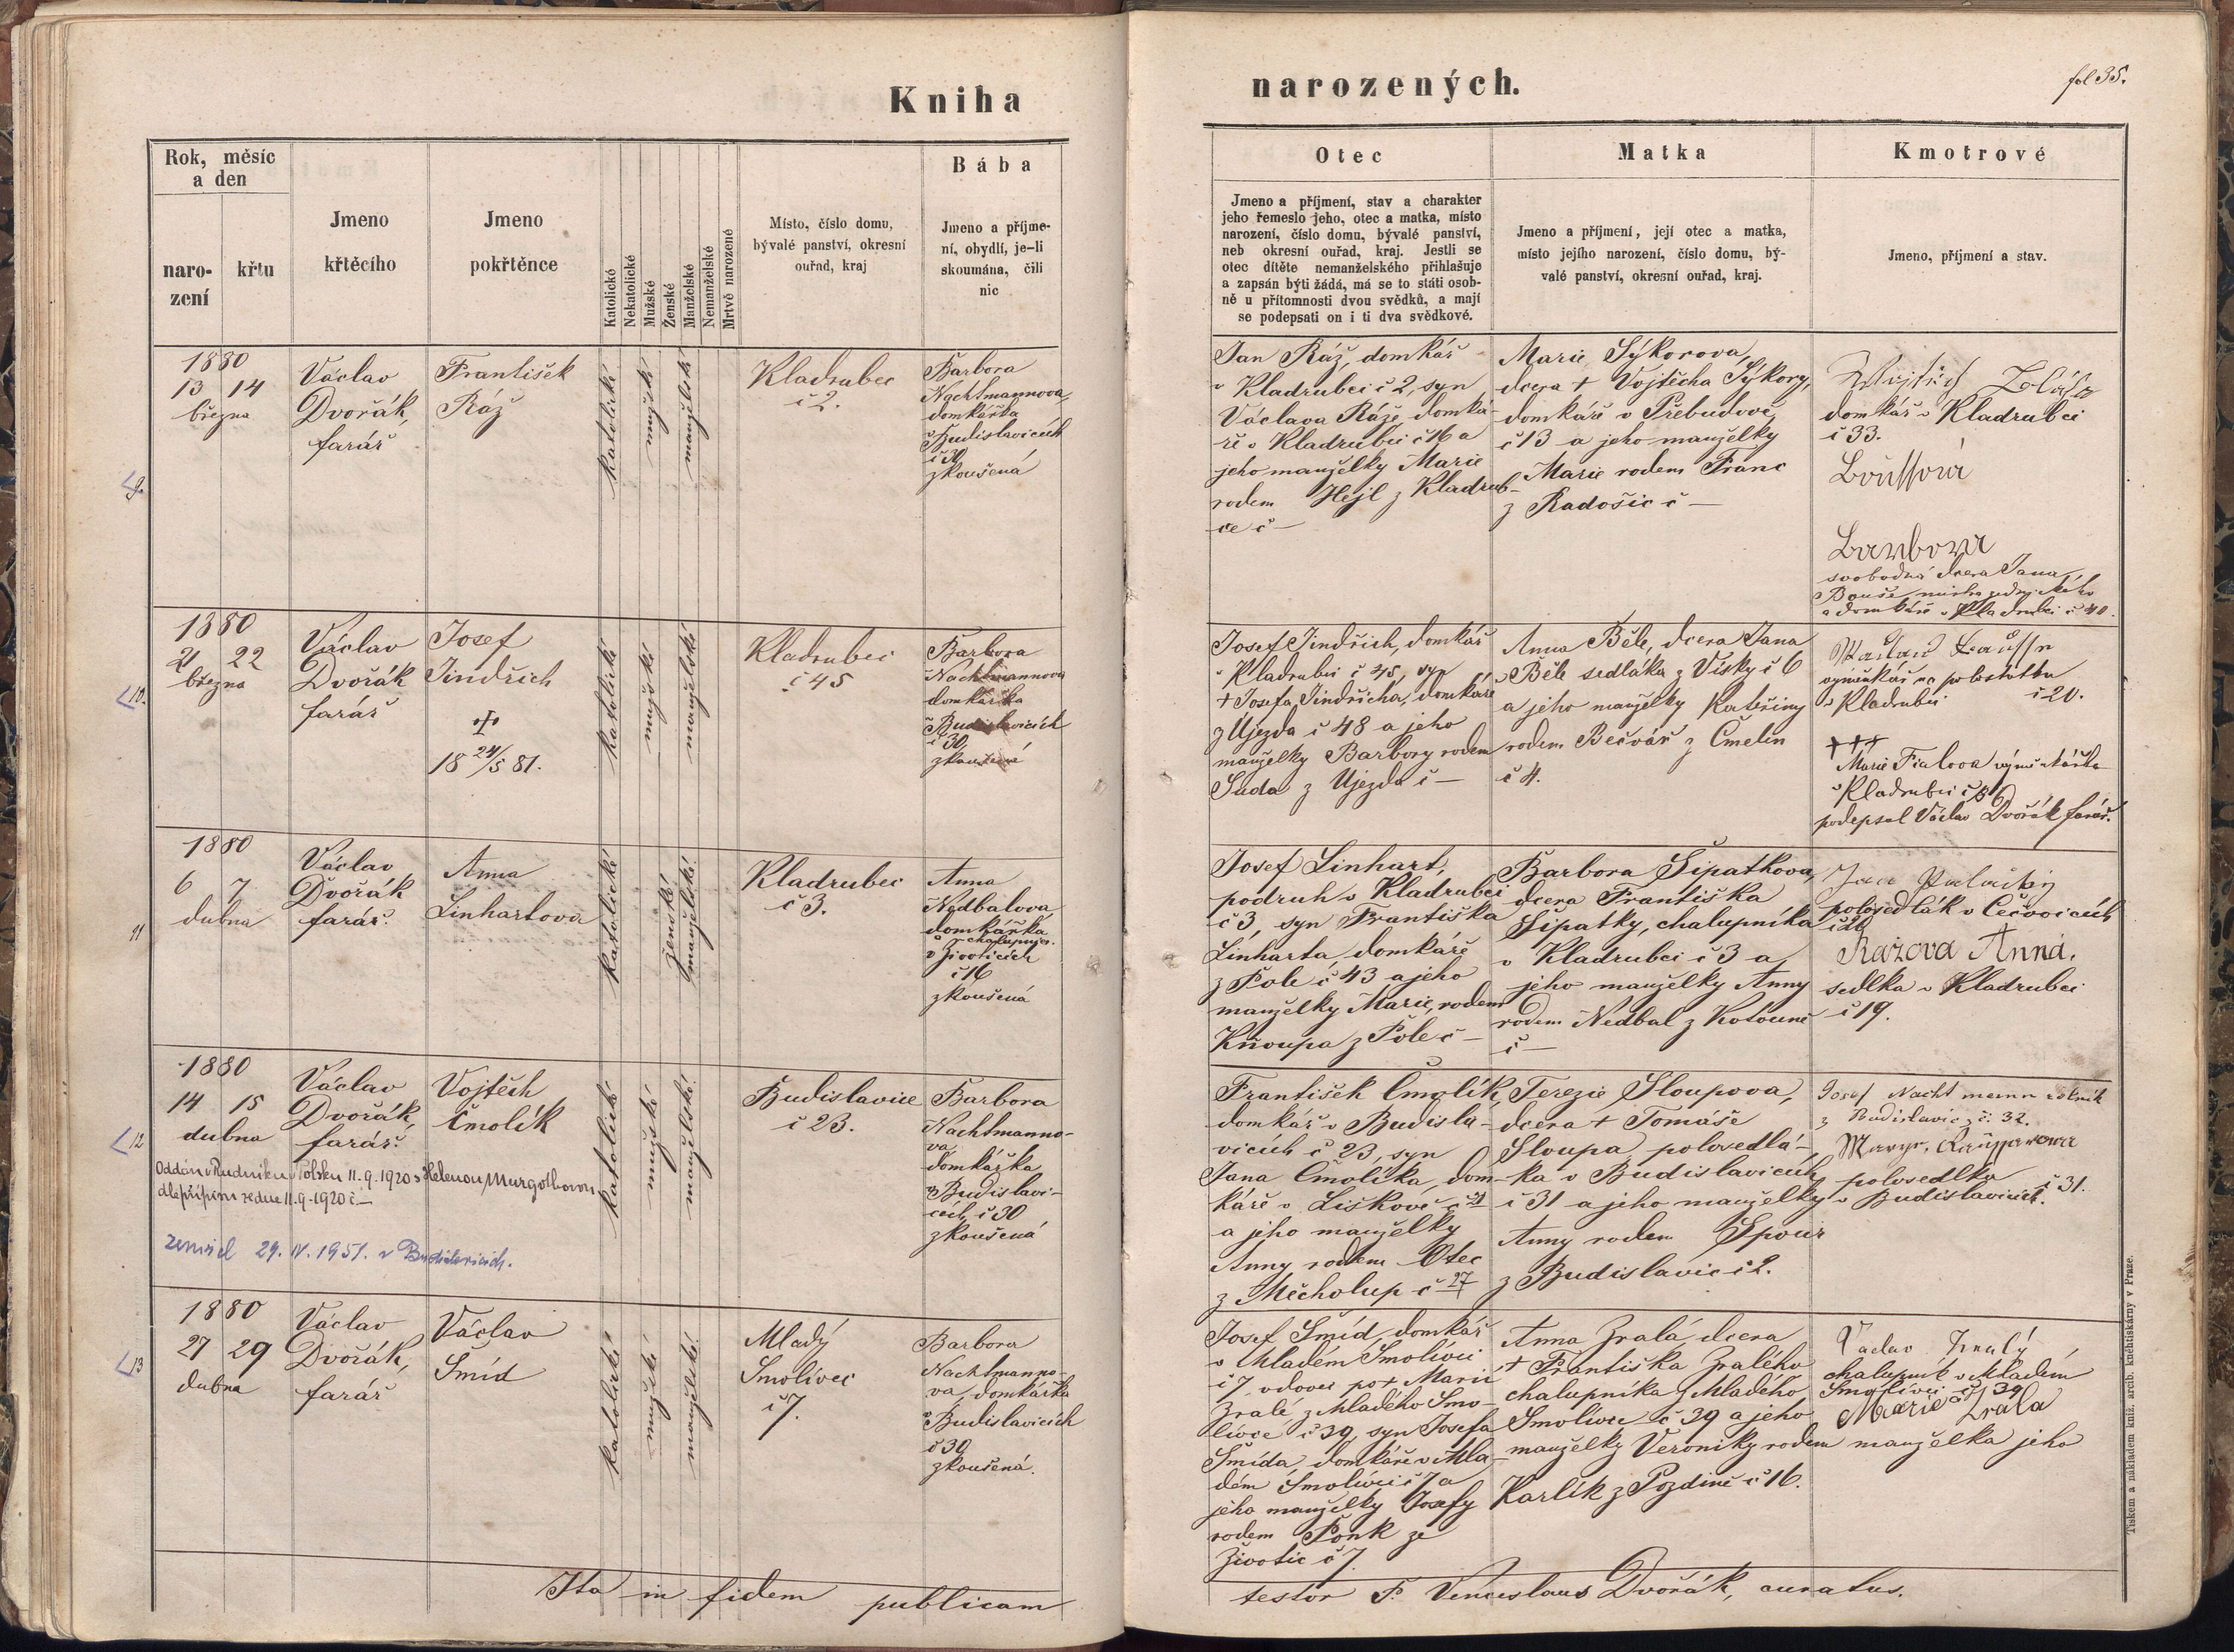 Kniha
narozených.
fol 35.
Rok, měsíc
a den
naro-
zení
křtu
Jmeno
křtěcího
Jmeno
pokřtěnce
Katolické
Nekatolické
Mužské
Ženské
Manželské
Nemanželské
Mrtvě narozené
Místo, číslo domu,
bývalé panství, okresní
ouřad, kraj
Bába
Jmeno a příjme-
ní, obydlí, je-li
skoumána, čili
nic
Otec
Jmeno a příjmení, stav a charakter
jeho řemeslo jeho, otec a matka, místo
narození, číslo domu, bývalé panství,
neb okresní ouřad, kraj. Jestli se
otec dítěte nemanželského přihlašuje
a zapsán býti žádá, má se to státi osob-
ně u přítomnosti dvou svědků, a mají
se podepsati on i ti dva svědkové.
Matka
Jmeno a příjmení, její otec a matka,
místo jejího narození, číslo domu, bý-
valé panství, okresní ouřad, kraj.
Kmotrové
Jmeno, příjmení a stav.
9.
1880
13 14
března
Václav
Dvořák,
farář
František
Ráž
katolické
mužské
manželské
Kladrubec
č 2.
Barbora
Nachtmannova,
domkářka
v Budislavicích
č 30
zkoušená
Jan Ráž, domkář
v Kladrubci č 2, syn
Václava Ráže, domká-
ře v Kladrubci č 16 a
jeho manželky Marie
rodem Hejl z Kladrub-
ce č —
Marie Sýkorova,
dcera † Vojtěcha Sýkory,
domkáře v Přebudově
č 13 a jeho manželky
Marie rodem Franc
z Radošic č —
domkář v Kladrubci
č 33.
svobodná dcera Jana
a domkáře v Kladrubci č 40.
10.
1880
21 22
března
Václav
Dvořák
farář
Josef
Jindřich
†
18 24/5 81.
katolické
mužské
manželské
Kladrubec
č 45
Barbora
Nachtmannova
domkářka
v Budislavicích
č 30,
zkoušená
Josef Jindřich, domkář
v Kladrubci č 45, syn
† Josefa Jindřicha, domkáře
z Újezda č 48 a jeho
manželky Barbory rodem
Suda z Ujezda č —
Anna Běle, dcera Jana
Běle sedláka z Vísky č 6
a jeho manželky Kateřiny
rodem Bečvář z Čmelin
č 4.
v Kladrubci č 20.
+++
Marie Fialova výměnkářka
v Kladrubci č 8
podepsal Václav Dvořák farář.
11
1880
6 7
dubna
Václav
Dvořák
farář.
Anna
Linhartova
katolické
ženské
manželské
Kladrubec
č 3.
Anna
Nedbalová
domkářka
v Životicích
č 16
zkoušená
Josef Linhart,
podruh v Kladrubci
č 3, syn Františka
Linharta domkáře
z Pole č 43 a jeho
manželky Marie, rodem
Kňoupa z Pole č —
Barbora Šipatkova,
dcera Františka
Šipatky, chalupníka
v Kladrubci č 3 a
jeho manželky Anny
rodem Nedbal z Kotouně
č —
Jan
polosedlák v Čečovicích
Ražova Anna,
sedlka v Kladrubci
č 19.
12
1880
14 15
dubna
Václav
Dvořák,
farář.
Vojtěch
Čmolík
katolické
mužské
manželské
Budislavice
č 23.
Barbora
Nachtmanno-
va
domkářka
v Budislavi-
cích č 30
zkoušená
Oddán v Rudniku v Polsku 11.9.1920 s Helenou Murgotbovou
dle přípisu ze dne 11.9.1920 č —
zemřel 29. IV. 1951. v Budislavicích.
František Čmolík,
domkář v Budisla-
vicích č 23, syn
Jana Čmolíka, dom-
káře v Liškově č 21
a jeho manželky
Anny rodem Otec
z Měcholup č 27
Terezie Sloupova,
dcera † Tomáše
Sloupa, polosedlá-
ka v Budislavicích
č 31 a jeho manželky
Anny rodem Spour
z Budislavic č 2.
Josef Nachtmann rolník
z Budislavic č. 32.
polosedlka
v Budislavicích č 31.
13
1880
27 29
dubna
Václav
Dvořák,
farář
Václav
Šmíd
katolické
mužské
manželské
Mladý
Smolivec
č 7.
Barbora
Nachtmanno-
va, domkářka
v Budislavicích
č 30
zkoušená.
Josef Šmíd, domkář
v Mladém Smolivci
č 7, vdovec po † Marii
Zralé, z Mladého Smo-
livce č 39, syn Josefa
Šmída, domkáře v Mla-
dém Smolivci č 7 a
jeho manželky Josefy
rodem Ponk ze
Životic č 7.
Anna Zralá, dcera
† Františka Zralého
chalupníka z Mladého
Smolivce č 39 a jeho
manželky Veroniky rodem
Karlík z Pozdině č 16.
Vaclav Zralý
chalupník v Mladém
Smolivci č 39
Marie Zrala
manželka jeho
Ita in fidem publicam
testor P. Venceslaus Dvořák, curatus.
Tiskem a nákladem kníž. arcib. knehtiskárny v Praze.